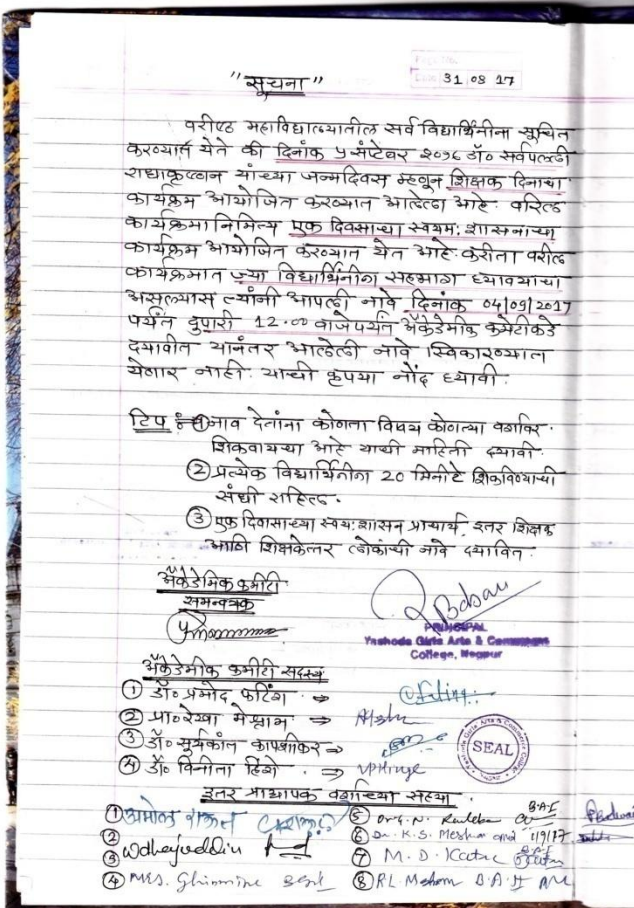 Page No.
Date 31 08 17
"सूचना"
वरीष्ठ महाविद्यालयातील सर्व विद्यार्थिनींना सूचित
करण्यात येते की दिनांक ५ संप्टेंबर २०१६ डॉ० सर्वपल्ली
राधाकृष्णन यांच्या जन्मदिवस म्हणून शिक्षक दिनाचा
कार्यक्रम आयोजित करण्यात आलेला आहे. वरिल
कार्यक्रमा निमित्य एक दिवसाच्या स्वयम: शासनाचा
कार्यक्रम आयोजित करण्यात येत आहे. करीता वरील
कार्यक्रमात ज्या विद्यार्थिनींना सहभाग घ्यावयाचा
असल्यास त्यांनी आपली नावे दिनांक 04/09/2017
पर्यंत दुपारी 12.00 वाजेपर्यंत अ‍ॅकेडेमीक कमेटीकडे
दयावीत यानंतर आलेली नावे स्विकारण्यात
येणार नाही. याची कृपया नोंद घ्यावी.
टिप :- ① नाव देतांना कोणता विषय कोणत्या वर्गावर
शिकवायचा आहे याची माहिती दयावी.
② प्रत्येक विद्यार्थिनींना 20 मिनीटे शिकविण्याची
संधी राहिल.
③ एक दिवासाच्या स्वय:शासन प्राचार्य, इतर शिक्षक
आणि शिक्षकेत्तर लोकांची नावे दयावित.
अ‍ॅकेडेमिक कमीटी
समन्वयक
PRINCIPAL
Yashoda Girls Arts & Commerce
College, Nagpur
अ‍ॅकेडेमीक कमीटी सदस्य
① डॉ० प्रमोद फटिंग ⇒
② प्रा० रेखा मेश्राम ⇒
③ डॉ० सुर्यकांत कापशीकर ⇒
④ डॉ० विनीता हिंगे ⇒ VPHinge
SEAL
इतर प्राध्यापक वर्गाच्या सहया
①
②
③ Wdhajuddin
④ Mrs. Ghimmire
⑤ Dr G. N. B.A.I
⑥ Dr. K. S. Meshram 1/9/17
⑦ M. D. Katre
⑧ R.L. Meshram B.A II